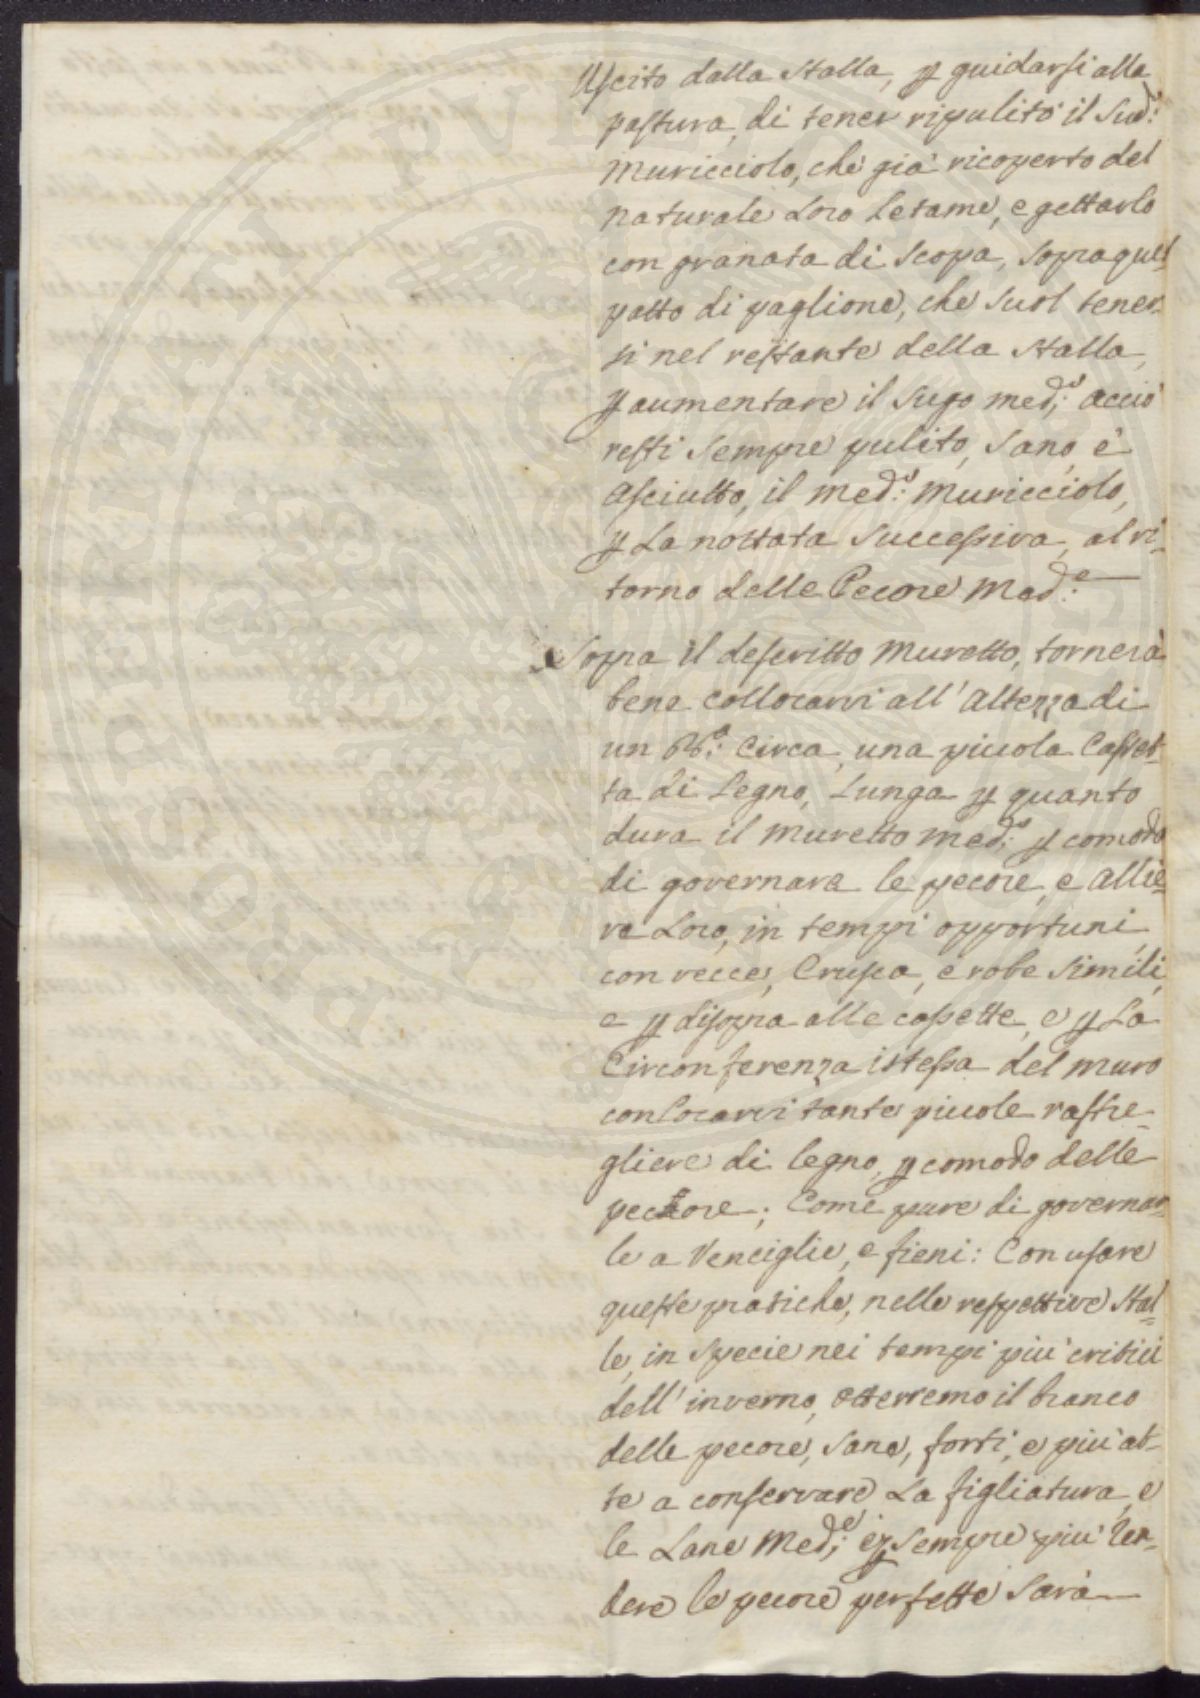 Uscito dalla Stalla, p guidarsi alla
pastura, di tener ripulito il Sud:o
Muricciolo, che già ricoperto del
naturale Loro Letame, e gettarlo
con granata di Scopa, Sopra quel
patto di paglione, che Suol tener-
si nel restante della Stalla,
p aumentare il Sugo med:o acciò
resti Sempre pulito, Sano, è
Asciutto, il med:o Muricciolo,
p La nottata Successiva, al ri-
torno delle Pecore Med:e
Sopra il descritto Muretto, tornerà
bene collocarvi all' Altezza di
un B:o Circa, una piccola Casset-
ta di Legno, Lunga p quanto
dura il Muretto med:o p comodo
di governare le pecore, e Allie-
ve Loro, in tempi opportuni,
con vecce, Crusca, e robe Simili,
e p disopra alle cassette, e p La
Circonferenza istessa del muro
conLocarvi tante piccole rastre-
gliere di legno, p comodo delle
pecore; Come pure di governar-
le a Venciglie, e fieni: Con usare
queste pratiche, nelle respettive Stal-
le, in Specie nei tempi più critici
dell' inverno, otterremo il branco
delle pecore, Sane, forti, e più at-
te a conservare La figliatura, e
le Lane Med:e e p Sempre più ren-
dere le pecore perfette Sarà